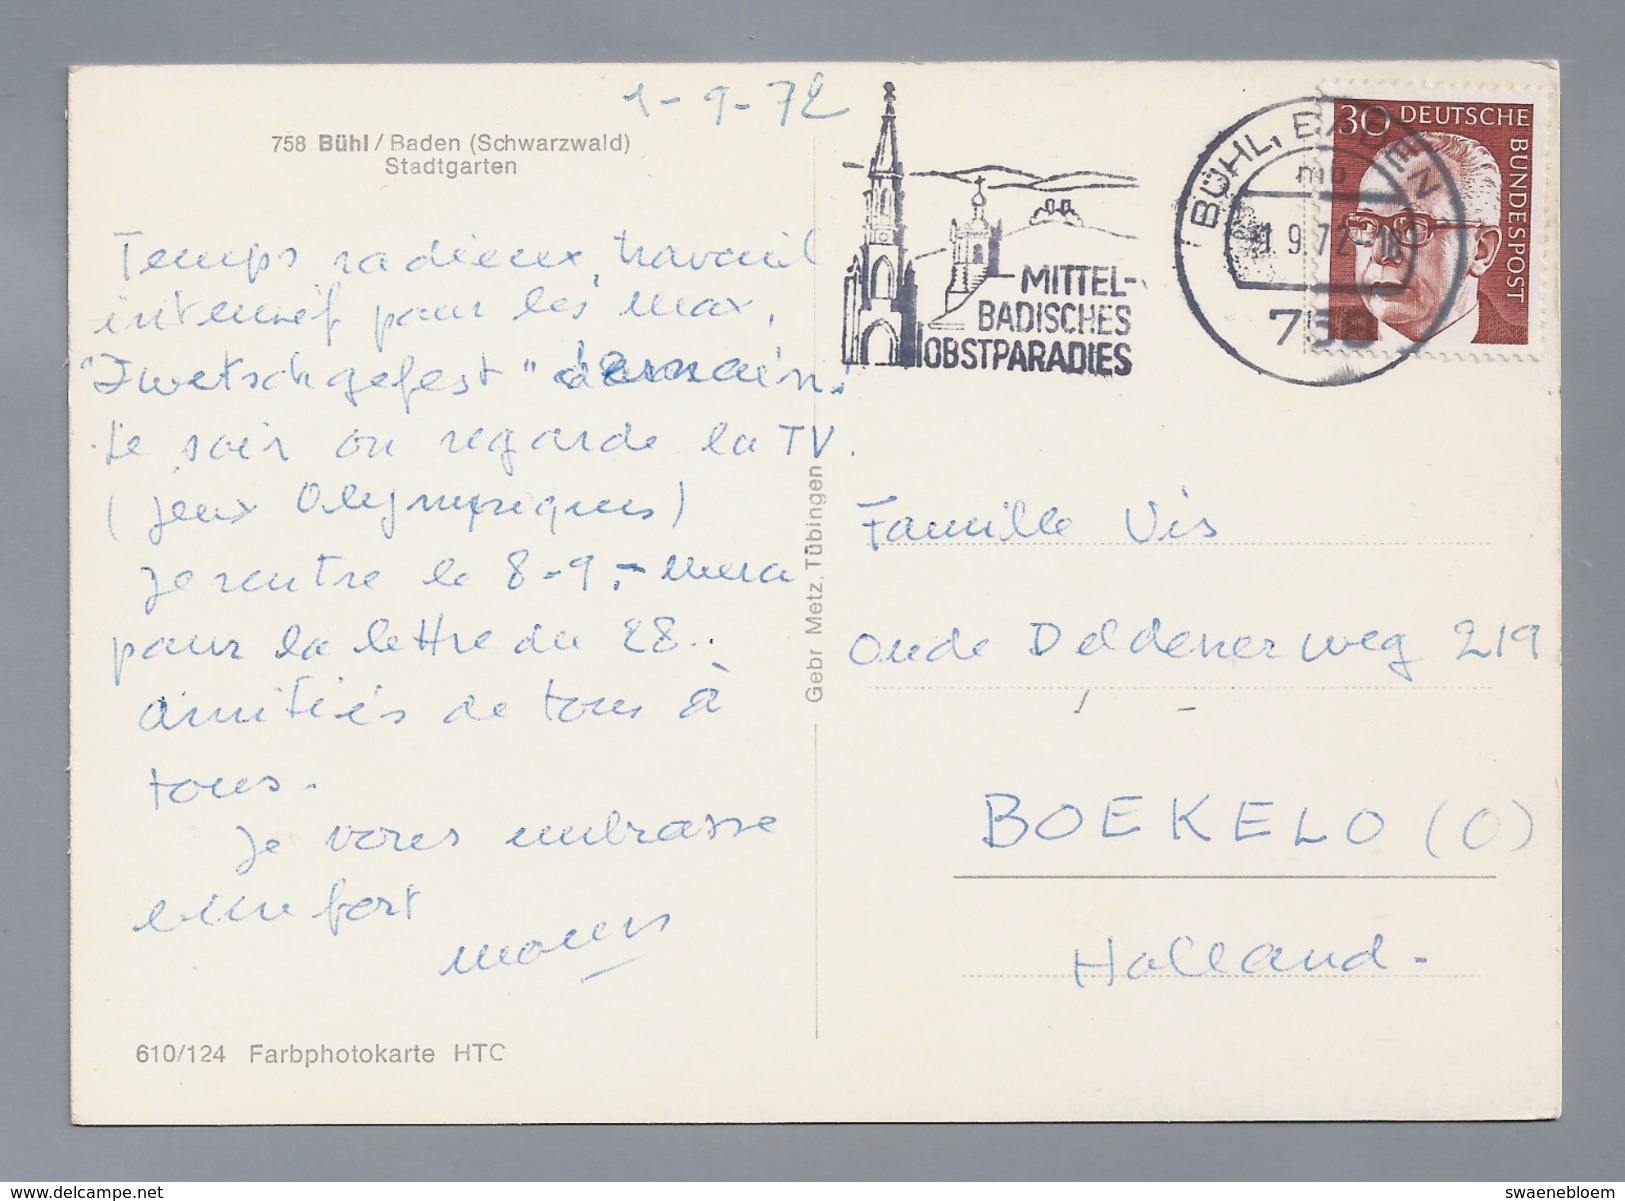 1-9-72
758 Bühl / Baden (Schwarzwald)
Stadtgarten
Temps radieux, travail
intensif pour les Max,
"Zwetschgefest" demain.
Le soir on regarde la TV.
(Jeux Olympiques)
Je rentre le 8-9.-
pour la lettre du 28..
amitiés de tous à
tous.
Je vous embrasse
bien fort
610/124 Farbphotokarte HTC
Gebr Metz, Tübingen
MITTEL-
BADISCHES
OBSTPARADIES
BÜHL, BADEN 1
mb
1.9.72-18
758
30 DEUTSCHE
BUNDESPOST
Famille Vis
Oude Deldenerweg 219
BOEKELO (O)
Holland.
www.delcampe.net
swaenebloem